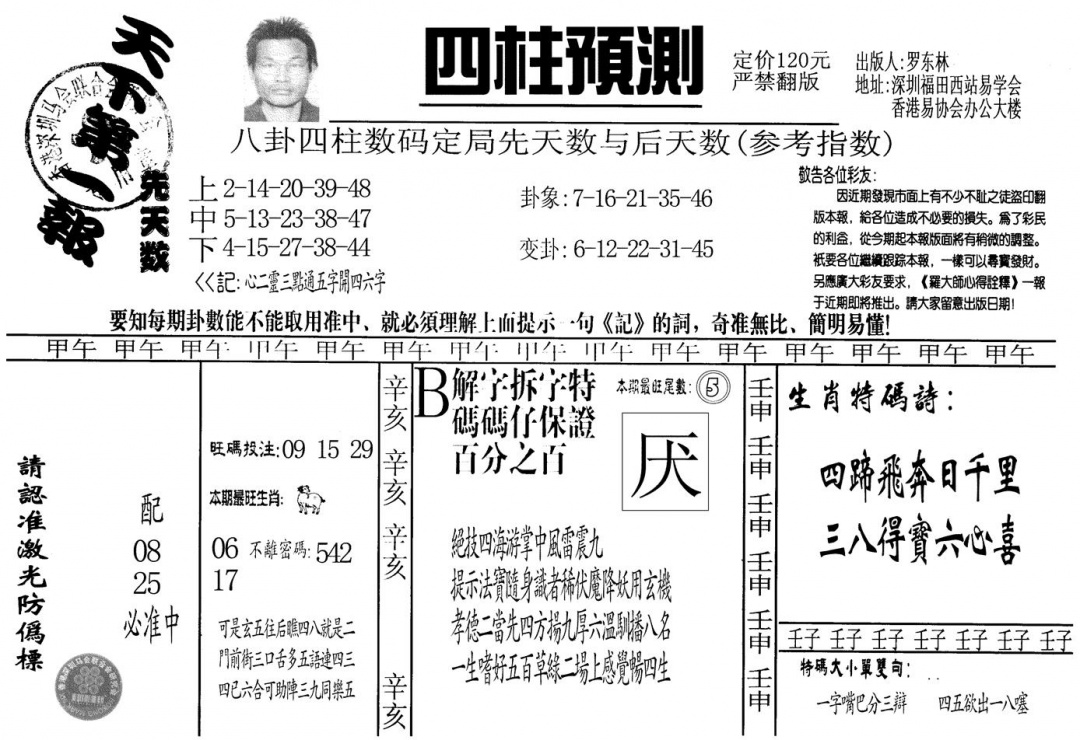 天下第一報
四柱預測
定价120元
严禁翻版
出版人:罗东林
地址:深圳福田西站易学会
香港易协会办公大楼
八卦四柱数码定局先天数与后天数(参考指数)
先天数
上2-14-20-39-48
中5-13-23-38-47
下4-15-27-38-44
<<記:心二靈三點通五字開四六字
卦象:7-16-21-35-46
变卦:6-12-22-31-45
敬告各位彩友:
因近期發現市面上有不少不耻之徒盜印翻
版本報，給各位造成不必要的損失。爲了彩民
的利益，從今期起本報版面將有稍微的調整。
衹要各位繼續跟踪本報，一樣可以尋寶發財。
另應廣大彩友要求，《羅大師心得詮釋》一報
于近期即將推出。請大家留意出版日期!
要知每期卦數能不能取用准中、就必須理解上面提示一句《記》的詞，奇准無比、簡明易懂!
甲午 甲午 甲午 甲午 甲午 甲午 甲午 甲午 甲午 甲午 甲午 甲午 甲午 甲午 甲午
請認准激光防僞標
配
08
25
必准中
旺碼投注:09 15 29
本期最旺生肖:
06 不離密碼:542
17
可是玄五往后瞧四八就是二
門前街三口舌多五語連四三
四已六合可助陣三九同樂五
辛亥 辛亥 辛亥 辛亥
B解字拆字特
碼碼仔保證
百分之百
本期最旺尾數:5
厌
絕技四海游掌中風雷震九
提示法寶隨身識者稀伏魔降妖用玄機
孝德二當先四方揚九厚六溫馴播八名
一生嗜好五百草綠二場上感覺暢四生
壬申 壬申 壬申 壬申 壬申 壬申
生肖特碼詩:
四蹄飛奔日千里
三八得寶六心喜
壬子 壬子 壬子 壬子 壬子 壬子 壬子
特碼大小單雙句:
一字嘴巴分三辯 四五欲出一八噻